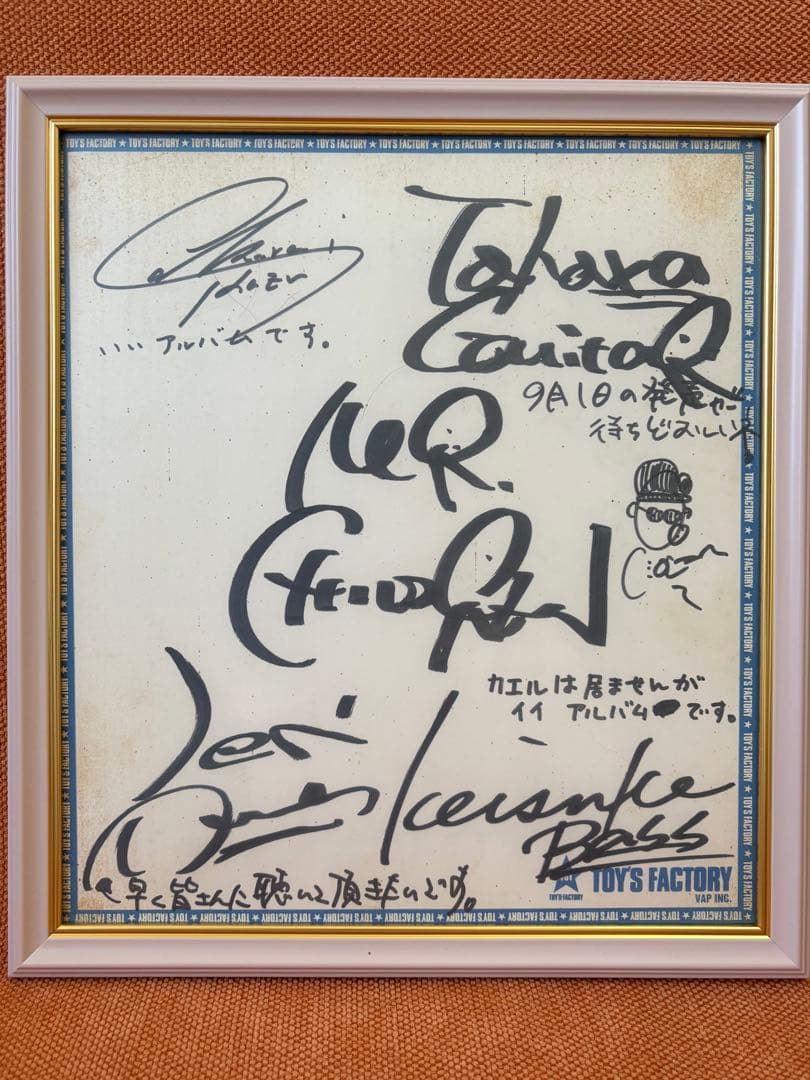 TOY'S FACTORY ★ TOY'S FACTORY ★ TOY'S FACTORY ★ TOY'S FACTORY ★ TOY'S FACTORY ★ TOY'S FACTORY ★ TOY'S FACTORY ★ TOY'S FACTORY ★ TOY'S FACTORY ★ TOY'S FACTORY ★ TOY'S FACTORY
Kazu
いい アルバムです。
Tahara
Guitar
9月1日の発売が
待ちどおしい
MR.
CHILDREN
カエルは居ませんが
イイ アルバムです。
Jen
Drums
Keisuke
BASS
早く皆さんに聴いて頂きたいです。
TOY'S FACTORY
TOY'S FACTORY
VAP INC.